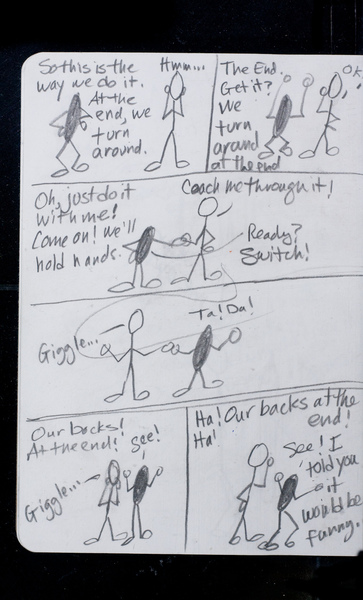 So this is the
way we do it.
At the
end, we
turn
around.
Hmm...
The End.
Get it?
We
turn
around
at the end
Oh, just do it
with me!
Come on! We'll
hold hands.
Coach me through it!
Ready?
Switch!
Giggle...
Ta! Da!
Our backs!
At the end!
See!
Giggle...
Ha! Our backs at the
Ha!
end!
See! I
told you
it
would be
funny.